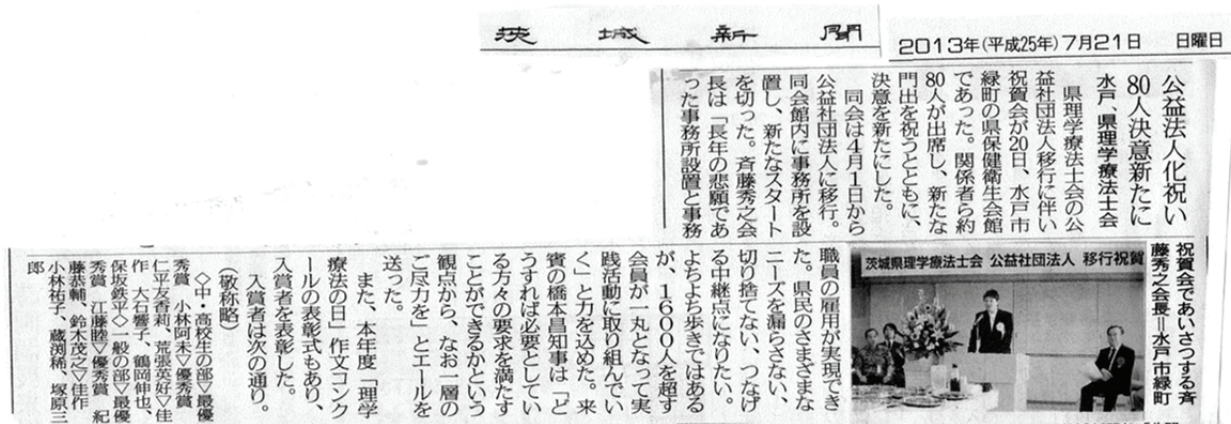 茨城新聞
2013年(平成25年)7月21日 日曜日
公益法人化祝い
80人決意新たに
水戸、県理学療法士会
県理学療法士会の公
益社団法人移行に伴い
祝賀会が20日、水戸市
緑町の県保健衛生会館
であった。関係者ら約
80人が出席し、新たな
門出を祝うとともに、
決意を新たにした。
同会は4月1日から
公益社団法人に移行。
同会館内に事務所を設
置し、新たなスタート
を切った。斉藤秀之会
長は「長年の悲願であ
った事務所設置と事務
職員の雇用が実現でき
た。県民のさまざまな
ニーズを漏らさない、
切り捨てない、つなげ
る中継点になりたい。
よちよち歩きではある
が、1600人を超す
会員が一丸となって実
践活動に取り組んでい
く」と力を込めた。来
賓の橋本昌知事は「ど
うすれば必要としてい
る方々の要求を満たす
ことができるかという
観点から、なお一層の
ご尽力を」とエールを
送った。
また、本年度「理学
療法の日」作文コンク
ールの表彰式もあり、
入賞者を表彰した。
入賞者は次の通り。
(敬称略)
◇中・高校生の部▽最優
秀賞 小林阿未▽優秀賞
仁平友香莉、荒張英好▽佳
作 大石響子、鶴岡伸也、
保坂鉄平◇一般の部▽最優
秀賞 江藤睦▽優秀賞 紀
藤恭輔、鈴木茂之▽佳作
小林祐子、蔵渕稀、塚原三
郎
茨城県理学療法士会 公益社団法人 移行祝賀
祝賀会であいさつする斉
藤秀之会長=水戸市緑町